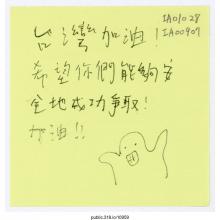 台灣加油！
IA01028
IA00907
希望你們能夠安
全地成功爭取！
加油!!
public.318.io/10959